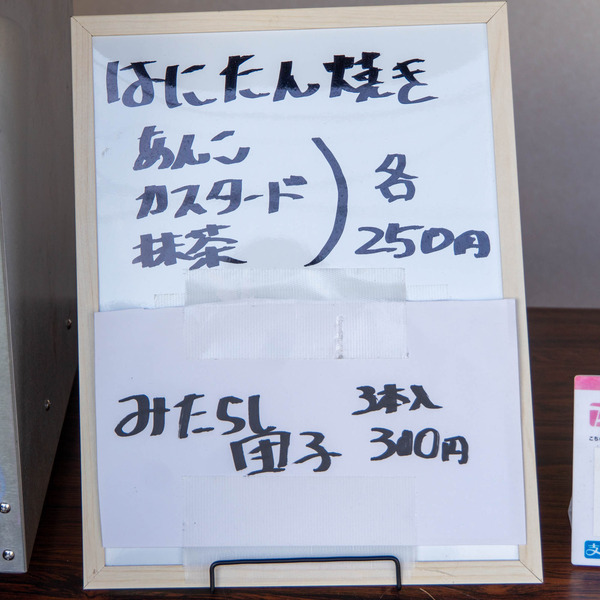 はにたん焼き
あんこ
カスタード
抹茶
各
250円
みたらし
団子
3本入
300円
支